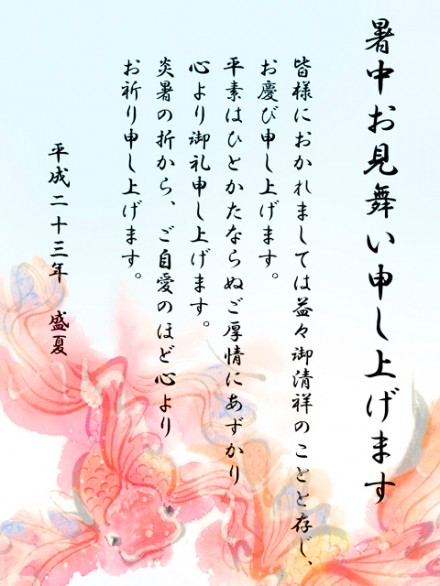 暑中お見舞い申し上げます
皆様におかれましては益々御清祥のことと存じ、
お慶び申し上げます。
平素はひとかたならぬご厚情にあずかり
心より御礼申し上げます。
炎暑の折から、ご自愛のほど心より
お祈り申し上げます。
平成二十三年 盛夏